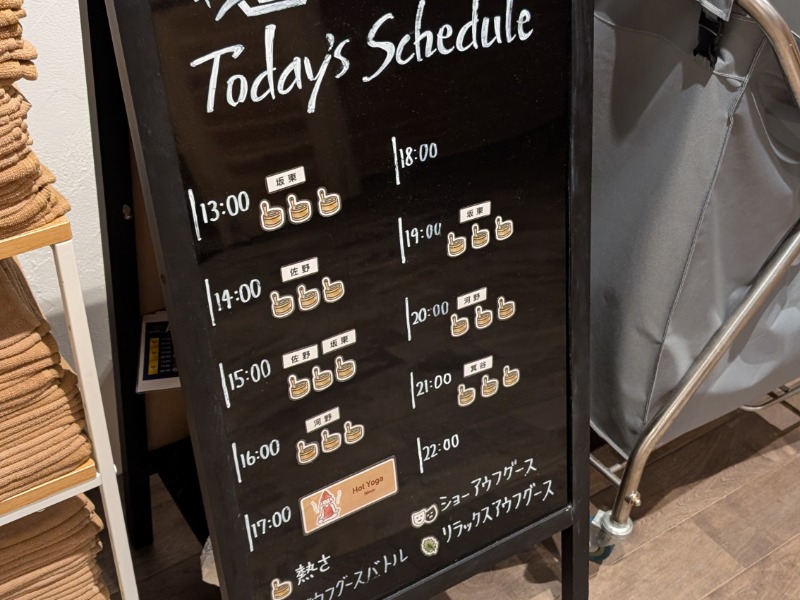 Today's Schedule
13:00 坂東
14:00 佐野
15:00 佐野 坂東
16:00 河野
17:00 Hot Yoga
18:00
19:00 坂東
20:00 河野
21:00 箕谷
22:00
熱さ
アウフグースバトル
ショーアウフグース
リラックスアウフグース